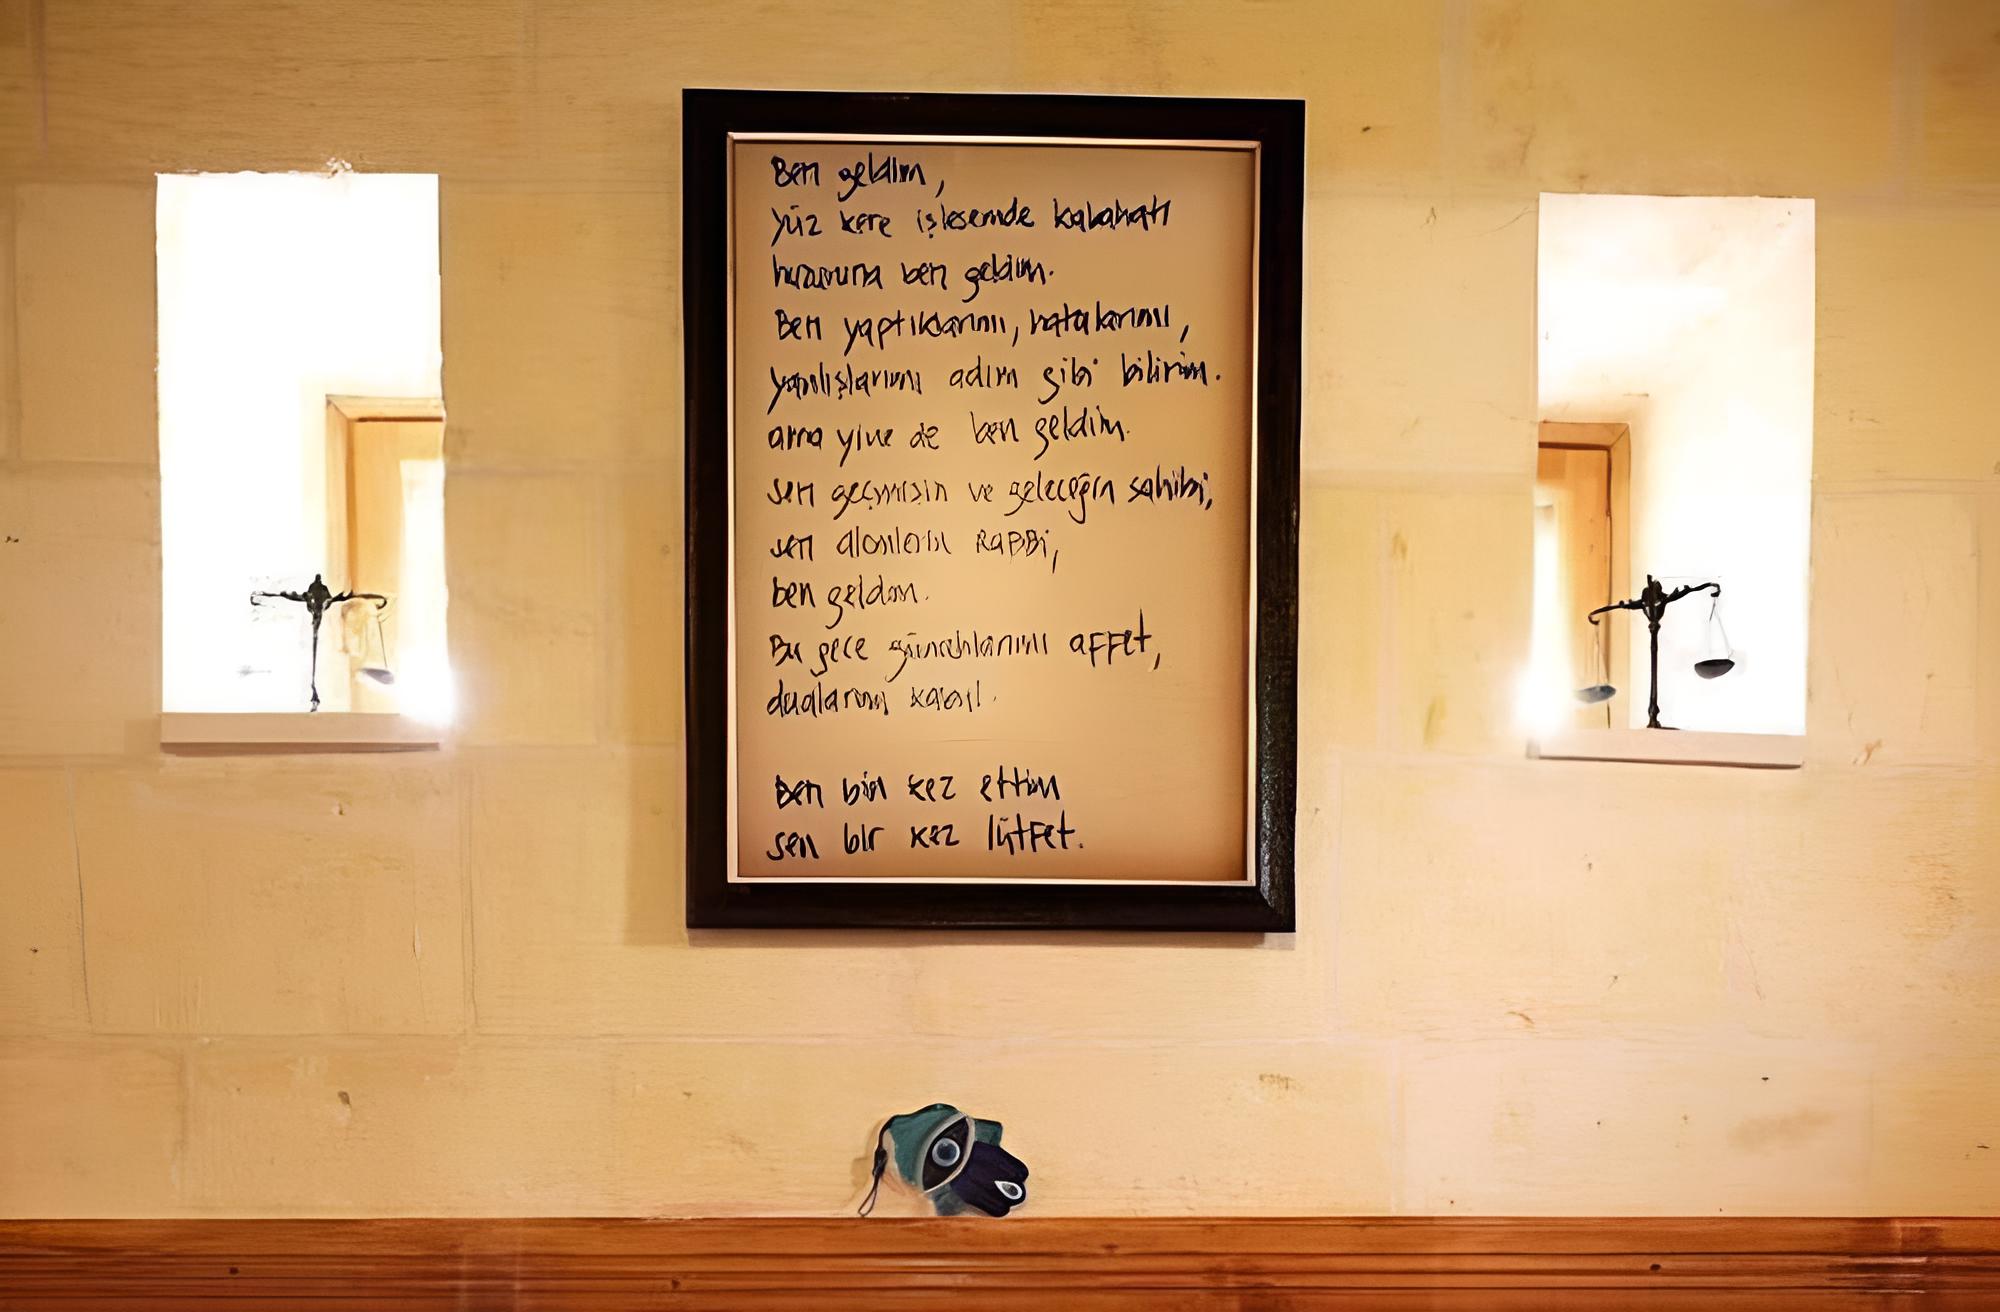 Ben geldim,
yüz kere işlesemde kabahati
huzuruna ben geldim.
Ben yaptıklarımı, hatalarımı,
yanlışlarımı adım gibi bilirim.
ama yine de ben geldim.
sen geçmişin ve geleceğin sahibi,
sen alemlerin RABBİ,
ben geldim.
Bu gece günahlarımı affet,
dualarımı kabul.
Ben bin kez ettim
sen bir kez lütfet.